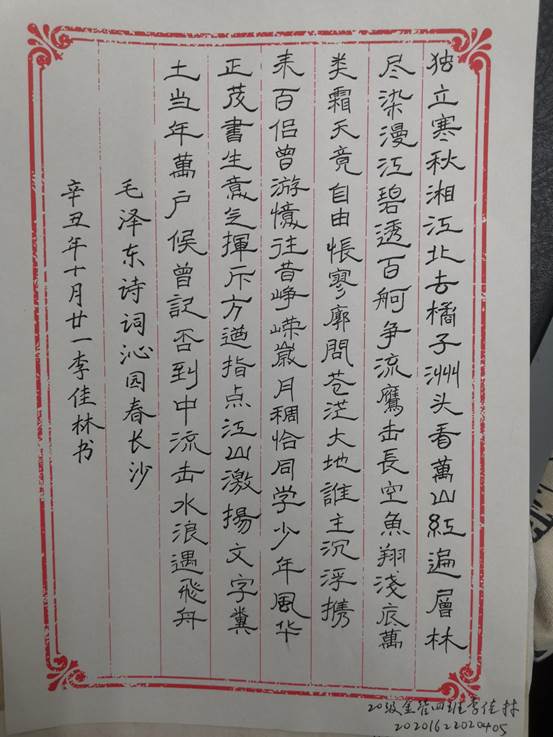 独立寒秋湘江北去橘子洲头看萬山紅遍層林
尽染漫江碧透百舸争流鷹击長空魚翔淺底萬
类霜天竟自由悵寥廓問苍茫大地誰主沉浮携
来百侣曾游憶往昔峥嵘嵗月稠恰同学少年風华
正茂書生意气揮斥方遒指点江山激揚文字糞
土当年萬户候曾記否到中流击水浪遏飛舟
毛泽东诗词沁园春长沙
辛丑年十月廿一李佳林书
20级金管四班李佳林
20201622020405